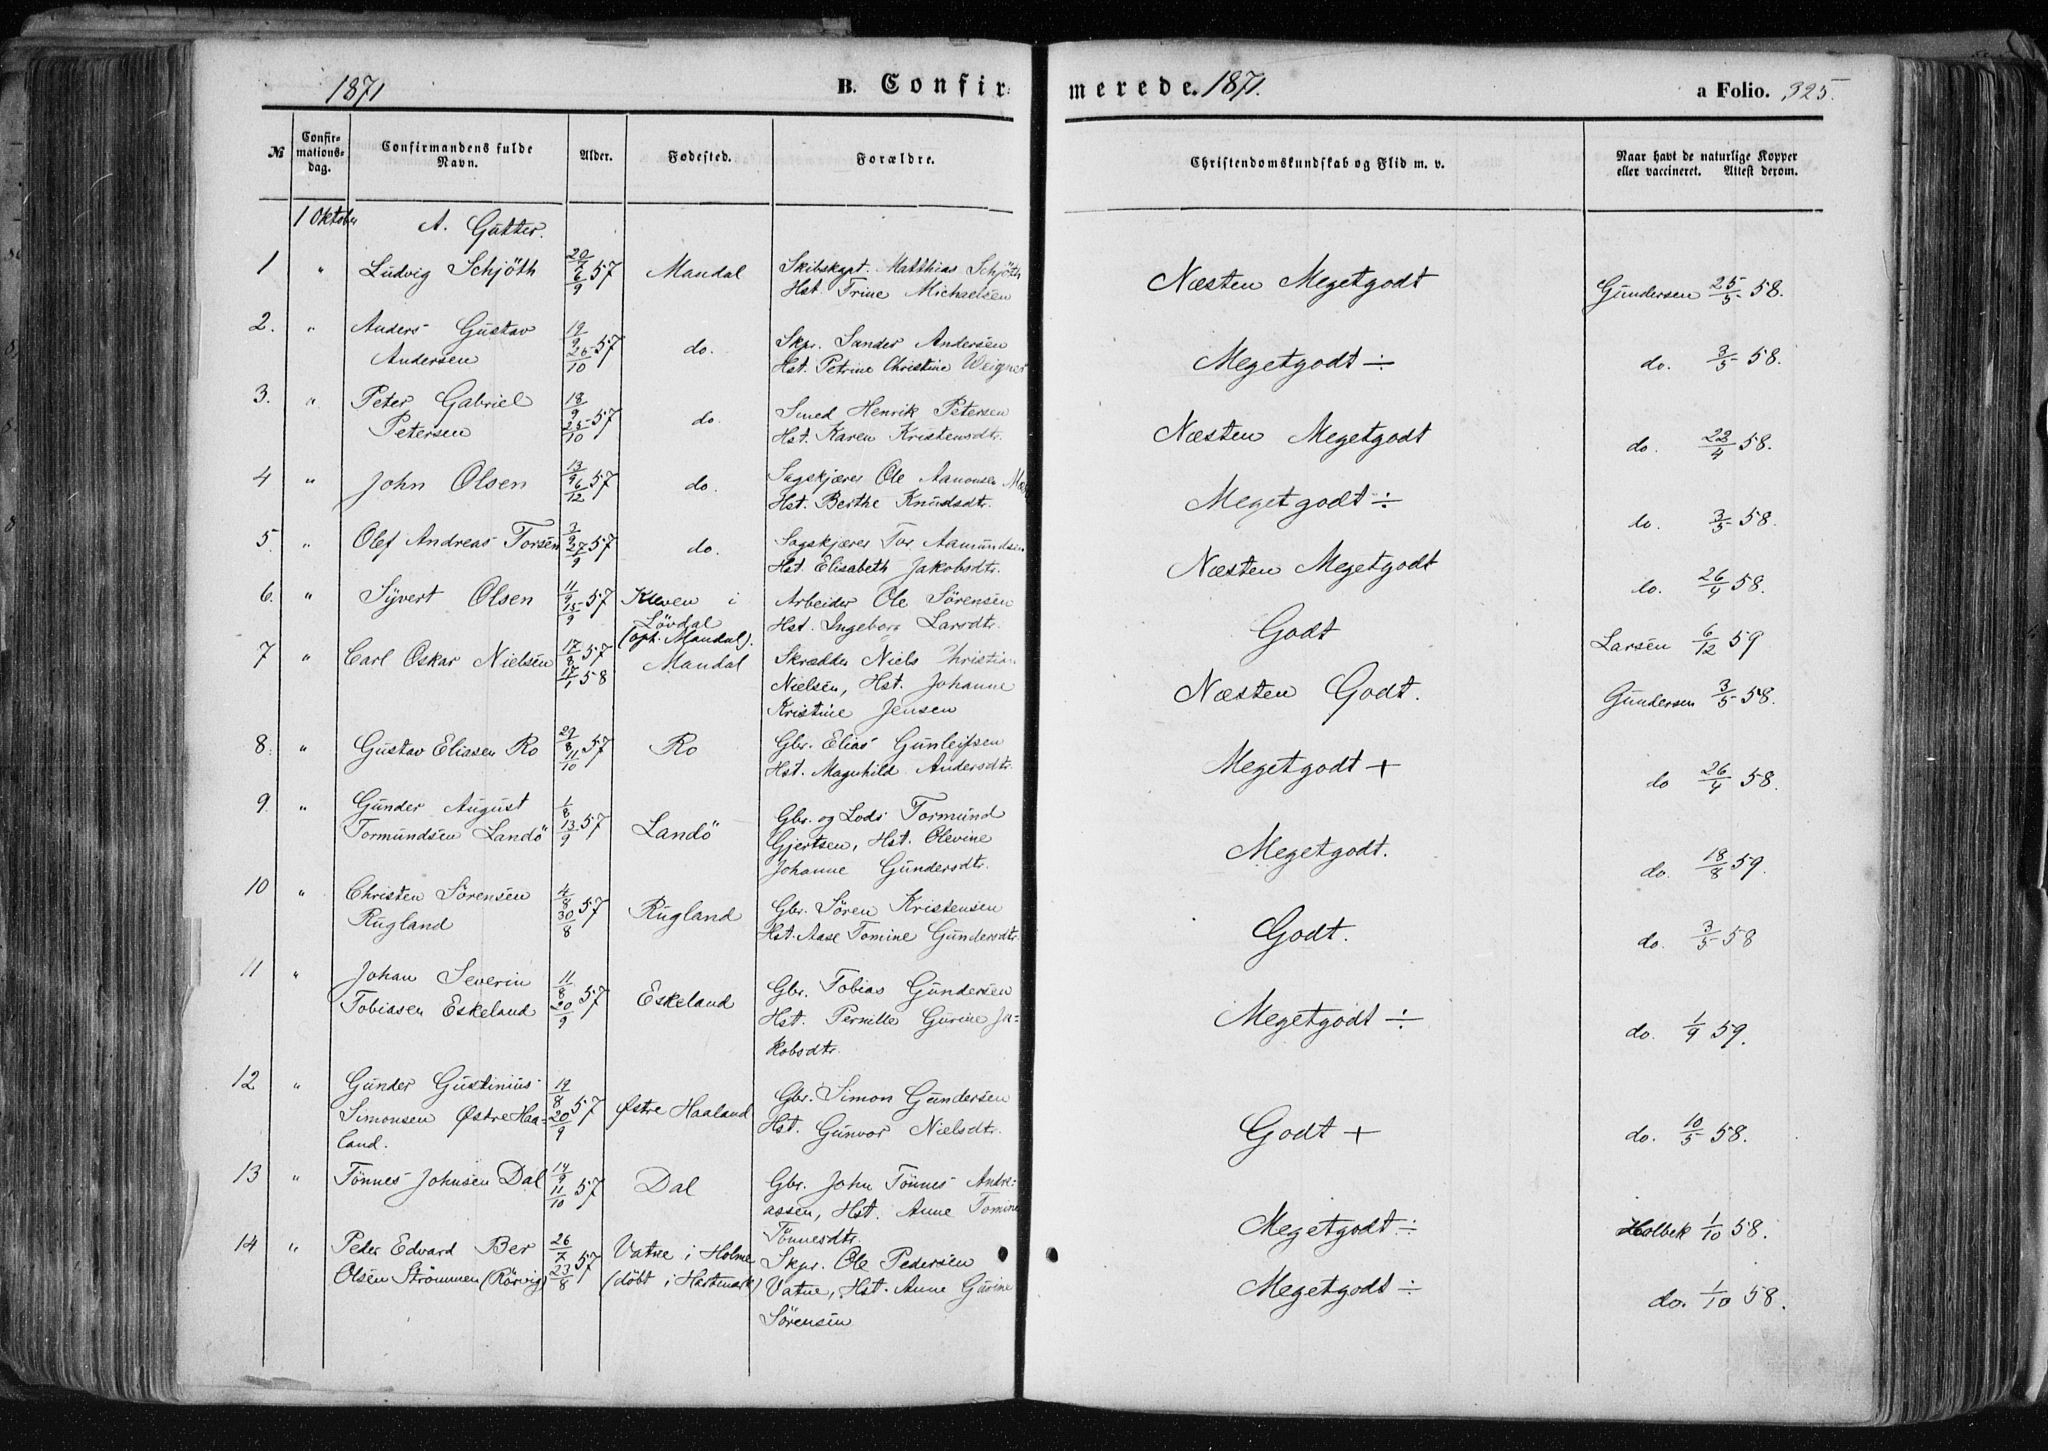 1871 B. Confirmerede. 1871. a Folio. 325.
№ Confirmationsdag. Confirmandens fulde Navn. Alder. Fødested. Forældre. Christendomskundskab og Flid m. v. Naar havt de naturlige Kopper eller vaccineret. Attest derom.
1 Oktober A. Gutter.
1 " Ludvig Schjöth 20/7 6/9 57 Mandal Skibskapt. Matthias Schjöth Næsten Megetgodt Gundersen 25/5 58.
Hst. Trine Michaelsen
2. " Anders Gustav 19/9 25/10 57 do. Skpr. Sander Andersen Megetgodt ÷ do. 3/5 58.
Andersen Hst. Petrine Christine Weigner
3. " Peter Gabriel 18/9 25/10 57 do. Smed Henrik Petersen Næsten Megetgodt do. 22/4 58.
Petersen Hst. Karen Kristensdtr.
4 " John Olsen 13/9 6/12 57 do. Sagskjærer Ole Aanonsen Megetgodt ÷ do. 3/5 58.
Hst. Berthe Knudsdtr.
5. " Olef Andreas Torsen 3/9 27/9 57 do. Sagskjærer Tor Aamundsen Næsten Megetgodt do. 26/4 58.
Hst. Elisabeth Jakobsdtr.
6. " Syvert Olsen 11/9 15/9 57 Kleven i Arbeider Ole Sörensen Godt Larsen 6/12 59
Lövdal Hst. Ingeborg Larsdtr.
(oph. Mandal).
7 " Carl Oskar Nielsen 17/8 57 17/1 58 Mandal Skrædder Niels Christian Næsten Godt. Gundersen 3/5 58.
Nielsen, Hst. Johanne
Kristine Jensen
8. " Gustav Eliasen Ro 29/8 11/10 57 Ro Gbr. Elias Gunleifsen Megetgodt + do 26/4 58.
Hst. Magnhild Andersdtr.
9. " Gunder August 1/8 13/9 57 Landö Gbr. og Lods Tormund Megetgodt. do. 18/8 59.
Tormundsen Landö Gjertsen, Hst. Olevine
Johanne Gundersdtr.
10 " Christen Sörensen 4/8 30/8 57 Rugland Gbr. Sören Kristensen Godt. do. 3/5 58
Rugland Hst. Aase Tomine Gundersdtr.
11 " Johan Severin 11/8 20/9 57 Eskeland Gbr. Tobias Gundersen Megetgodt ÷ do. 1/9 59.
Tobiasen Eskeland Hst. Pernille Gurine Ja-
kobsdtr.
12 " Gunder Gustinius 19/8 20/9 57 Østre Haaland Gbr. Simon Gundersen Godt + do. 10/5 58.
Simonsen Østre Haa- Hst. Gunvor Nielsdtr.
land.
13 " Tönnes Johnsen Dal 14/9 11/10 57 Dal Gbr. John Tönnes Andre- Megetgodt ÷ Holbek 1/10 58.
assen, Hst. Anne Tomine
Tönnesdtr.
14 " Peder Edvard Ber 26/7 23/8 57 Vatne i Holme Skpr. Ole Pedersen Megetgodt ÷ do. 1/10 58.
Olsen Strömmen (Rörvig) (döbt i Hartmark) Vatne, Hst. Anne Gurine
Sörensen